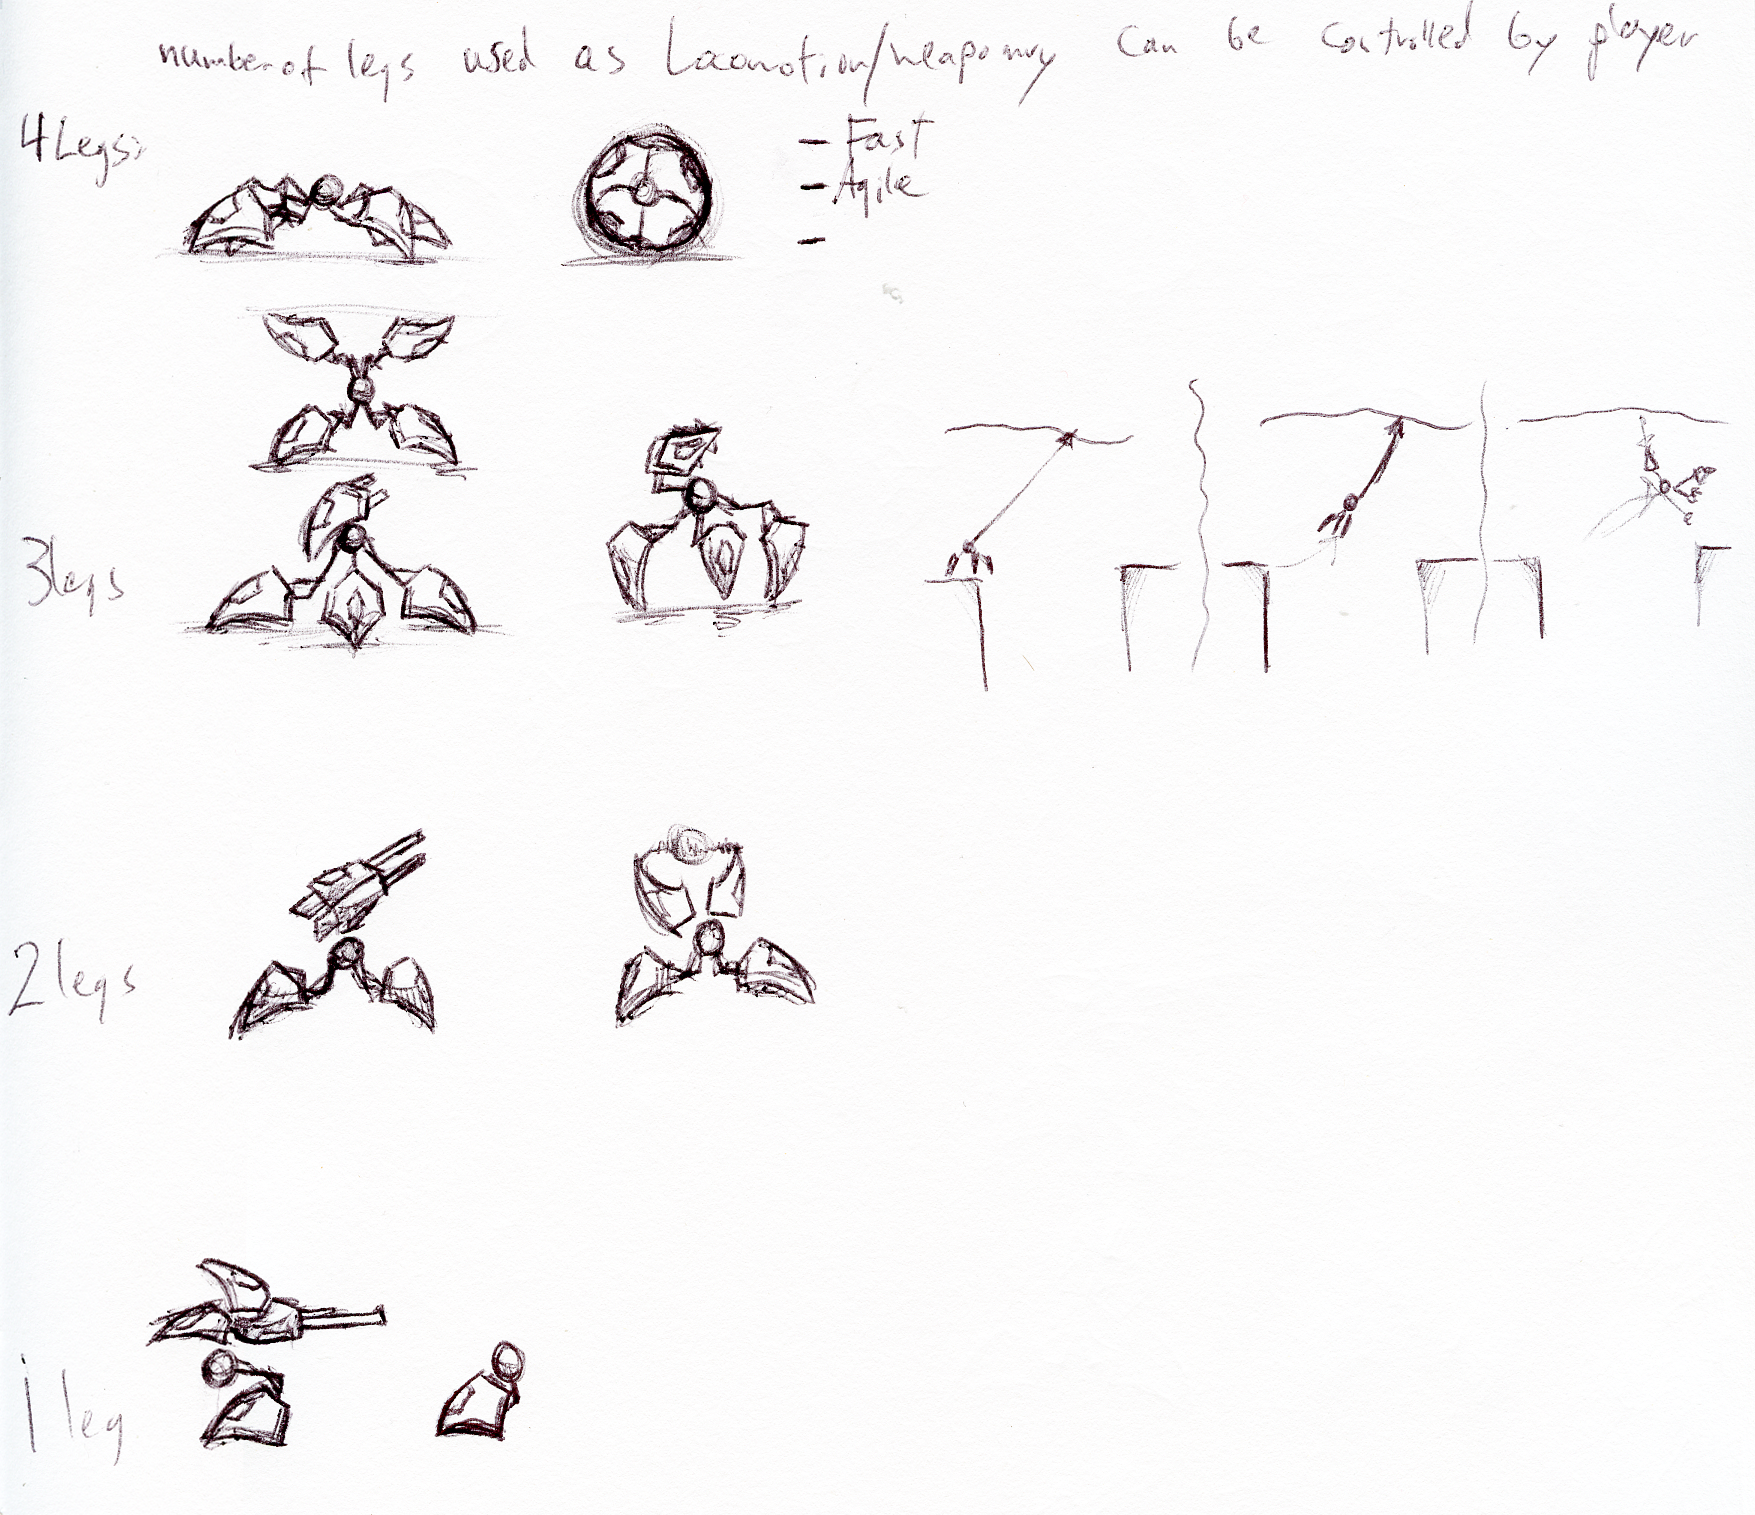 number of legs used as Locomotion/weaponry can be controlled by player
4 Legs:
- Fast
- Agile
-
3 legs
2 legs
1 leg